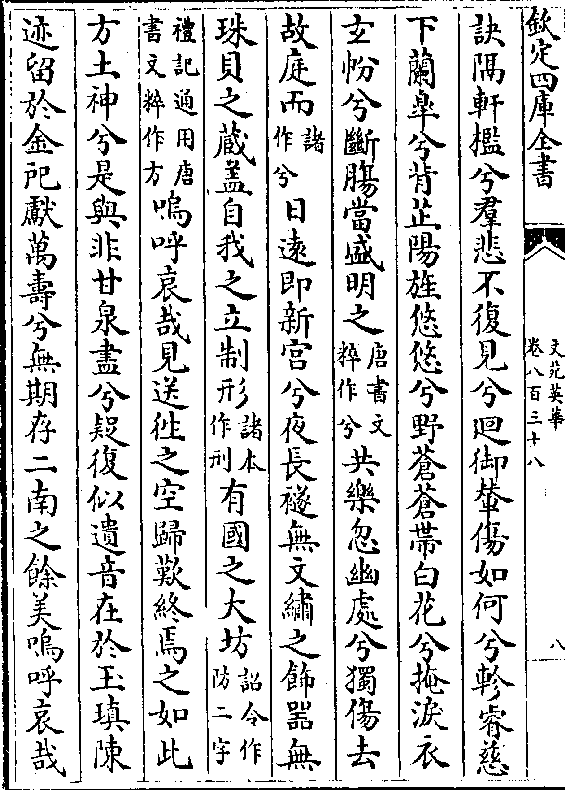 欽定四庫全書
文苑英華
卷八百三十八
八
訣隅軒檻兮羣悲不復見兮迴御輦傷如何兮軫睿慈
下蘭臯兮背芷陽旌悠悠兮野蒼蒼帶白花兮掩淚衣
玄帉兮斷腸當盛明之唐書文粹作兮共樂忽幽處兮獨傷去
故庭而諸作兮日遠即新宮兮夜長襚無文繡之飾器無
珠貝之蔵盖自我之立制形諸本作刑有國之大坊詔令作防二字
禮記通用唐書文粹作方嗚呼哀哉見送徃之空歸歎終焉之如此
方士神兮是與非甘泉盡兮疑復似遺音在於玉瑱陳
迹留於金䄫獻萬壽兮無期存二南之餘美嗚呼哀哉